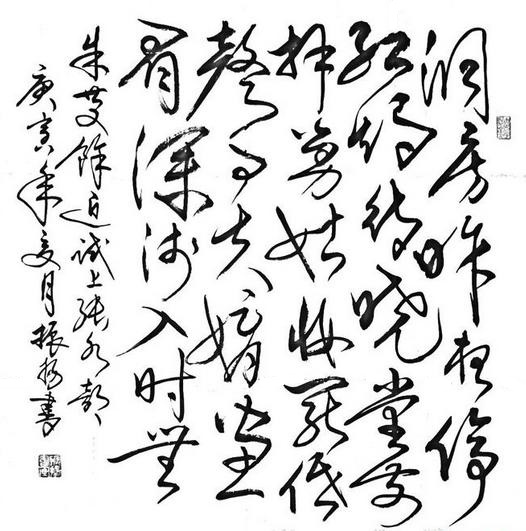 洞房昨夜停
红烛待晓堂前
拜舅姑妆罢低
聲问夫婿画
眉深浅入时無
朱慶餘近试上張水部
庚寅年夏月振書